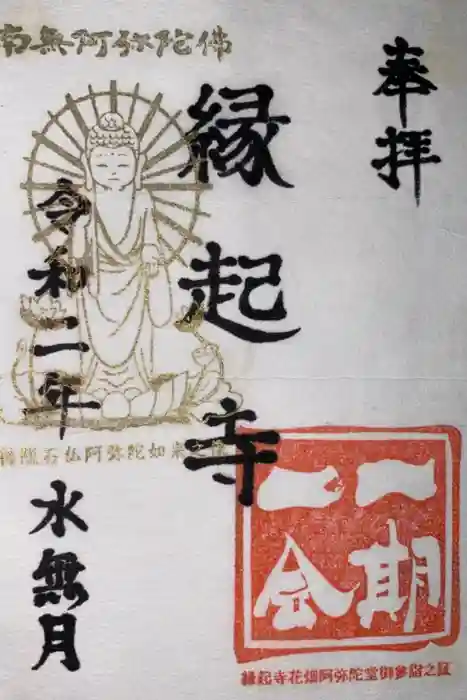 南無阿弥陀佛
奉拝
縁起寺
令和二年
水無月
石仏阿弥陀如来
一期一会
縁起寺花畑阿弥陀堂御参詣之証